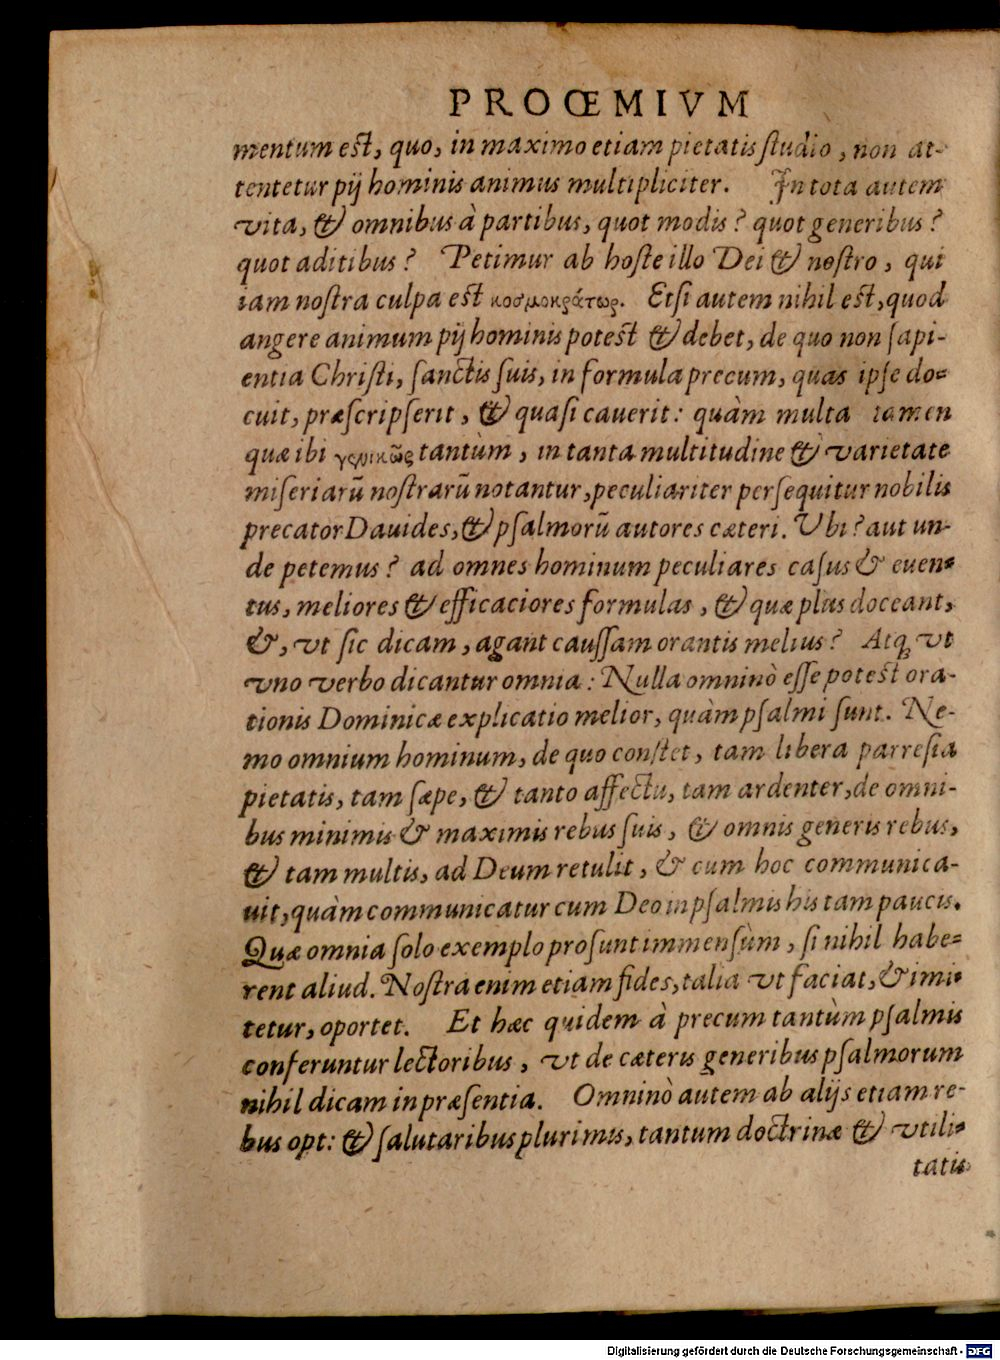 PROŒMIVM
mentum est, quo, in maximo etiam pietatis ſtudio, non at-
tentetur pij hominis animus multipliciter. In tota autem
vita, & omnibus à partibus, quot modis? quot generibus?
quot aditibus? Petimur ab hoſte illo Dei & noſtro, qui
iam noſtra culpa est κοσμοκράτωρ. Etſi autem nihil est, quod
angere animum pij hominis potest & debet, de quo non ſapi-
entia Chriſti, ſanctis ſuis, in formula precum, quas ipſe do-
cuit, præſcripſerit, & quaſi cauerit: quàm multa tamen
quæ ibi γενικῶς tantùm, in tanta multitudine & varietate
miſeriarũ noſtrarũ notantur, peculiariter perſequitur nobilis
precator Dauides, & pſalmorũ autores cæteri. Vbi? aut un-
de petemus? ad omnes hominum peculiares caſus & euen-
tus, meliores & efficaciores formulas, & quæ plus doceant,
&, vt ſic dicam, agant cauſſam orantis melius? Atq; vt
vno verbo dicantur omnia: Nulla omninò eſſe potest ora-
tionis Dominicæ explicatio melior, quàm pſalmi ſunt. Ne-
mo omnium hominum, de quo conſtet, tam libera parreſia
pietatis, tam ſæpe, & tanto affectu, tam ardenter, de omni-
bus minimis & maximis rebus ſuis, & omnis generis rebus,
& tam multis, ad Deum retulit, & cum hoc communica-
uit, quàm communicatur cum Deo in pſalmis his tam paucis.
Quæ omnia ſolo exemplo proſunt immenſùm, ſi nihil habe-
rent aliud. Noſtra enim etiam fides, talia vt faciat, & imi-
tetur, oportet. Et hæc quidem à precum tantùm pſalmis
conferuntur lectoribus, vt de cæteris generibus pſalmorum
nihil dicam in præſentia. Omninò autem ab alijs etiam re-
bus opt: & ſalutaribus plurimis, tantum doctrinæ & vtili-
tatis
Digitalisierung gefördert durch die Deutsche Forschungsgemeinschaft - DFG